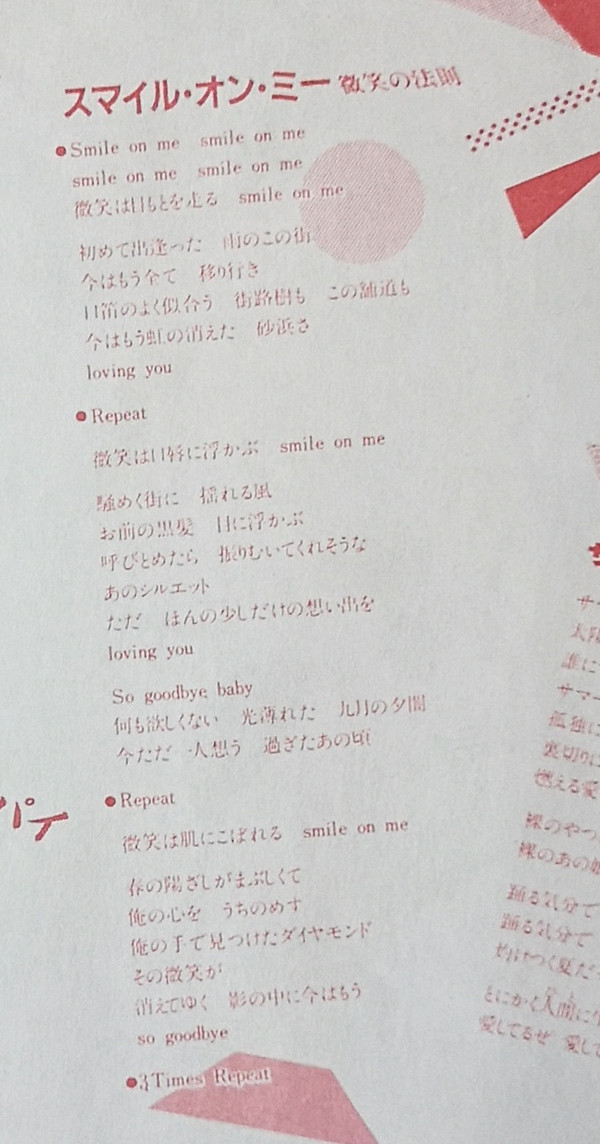 スマイル・オン・ミー 微笑の法則
●Smile on me smile on me
smile on me smile on me
微笑は目もとを走る smile on me
初めて出逢った 雨のこの街
今はもう全て 移り行き
口笛のよく似合う 街路樹も この舗道も
今はもう虹の消えた 砂浜さ
loving you
●Repeat
微笑は口唇に浮かぶ smile on me
騒めく街に 揺れる風
お前の黒髪 目に浮かぶ
呼びとめたら 振りむいてくれそうな
あのシルエット
ただ ほんの少しだけの想い出を
loving you
So goodbye baby
何も欲しくない 光薄れた 九月の夕闇
今ただ 一人想う 過ぎたあの頃
●Repeat
微笑は肌にこぼれる smile on me
春の陽ざしがまぶしくて
俺の心を うちのめす
俺の手で見つけたダイヤモンド
その微笑が
消えてゆく 影の中に今はもう
so goodbye
●3 Times Repeat
パテ
サ
サー
太陽
誰に
サマー
孤独に
裏切りに
燃える愛
裸のやつ
裸のあの娘
踊る気分で
踊る気分で
灼けつく夏だ
とにかく人間に
愛してるぜ 愛して